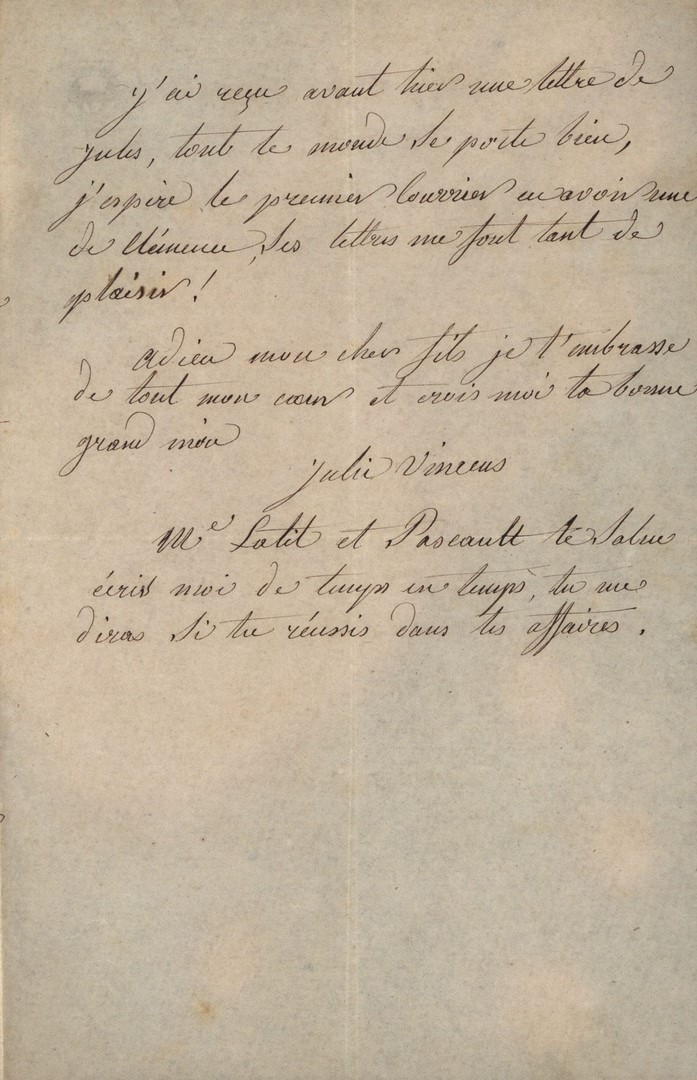 j'ai reçu avant hier une lettre de
Jules, tout le monde se porte bien,
j'espère le premier Courrier en avoir une
de Clémence, Ses lettres me font tant de
plaisir !
adieu mon cher fils je t'embrasse
de tout mon cœur et crois moi ta bonne
grand mère
Julie Vincens
Me et Pascault te Salue
écris moi de temps en temps, tu me
diras Si tu réussis dans tes affaires.